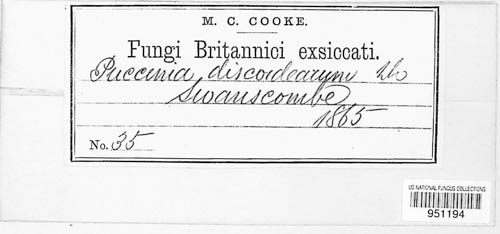 M. C. COOKE.
Fungi Britannici exsiccati.
Puccinia discoidearum
Swanscombe
1865
No. 35
US NATIONAL FUNGUS COLLECTIONS
951194